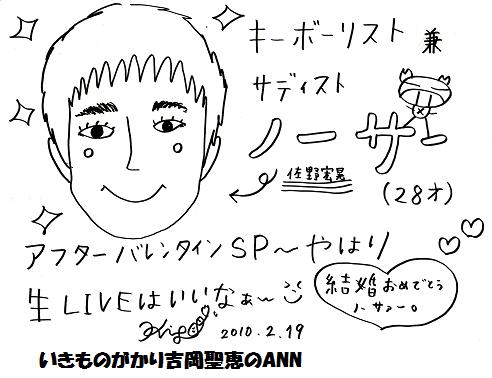 キーボーリスト 兼
サディスト
ノーサー
佐野宏晃
(28才)
アフターバレンタインSP〜やはり
生LIVEはいいなぁ〜
結婚おめでとう
ノーサァー。
2010.2.19
いきものがかり吉岡聖恵のANN